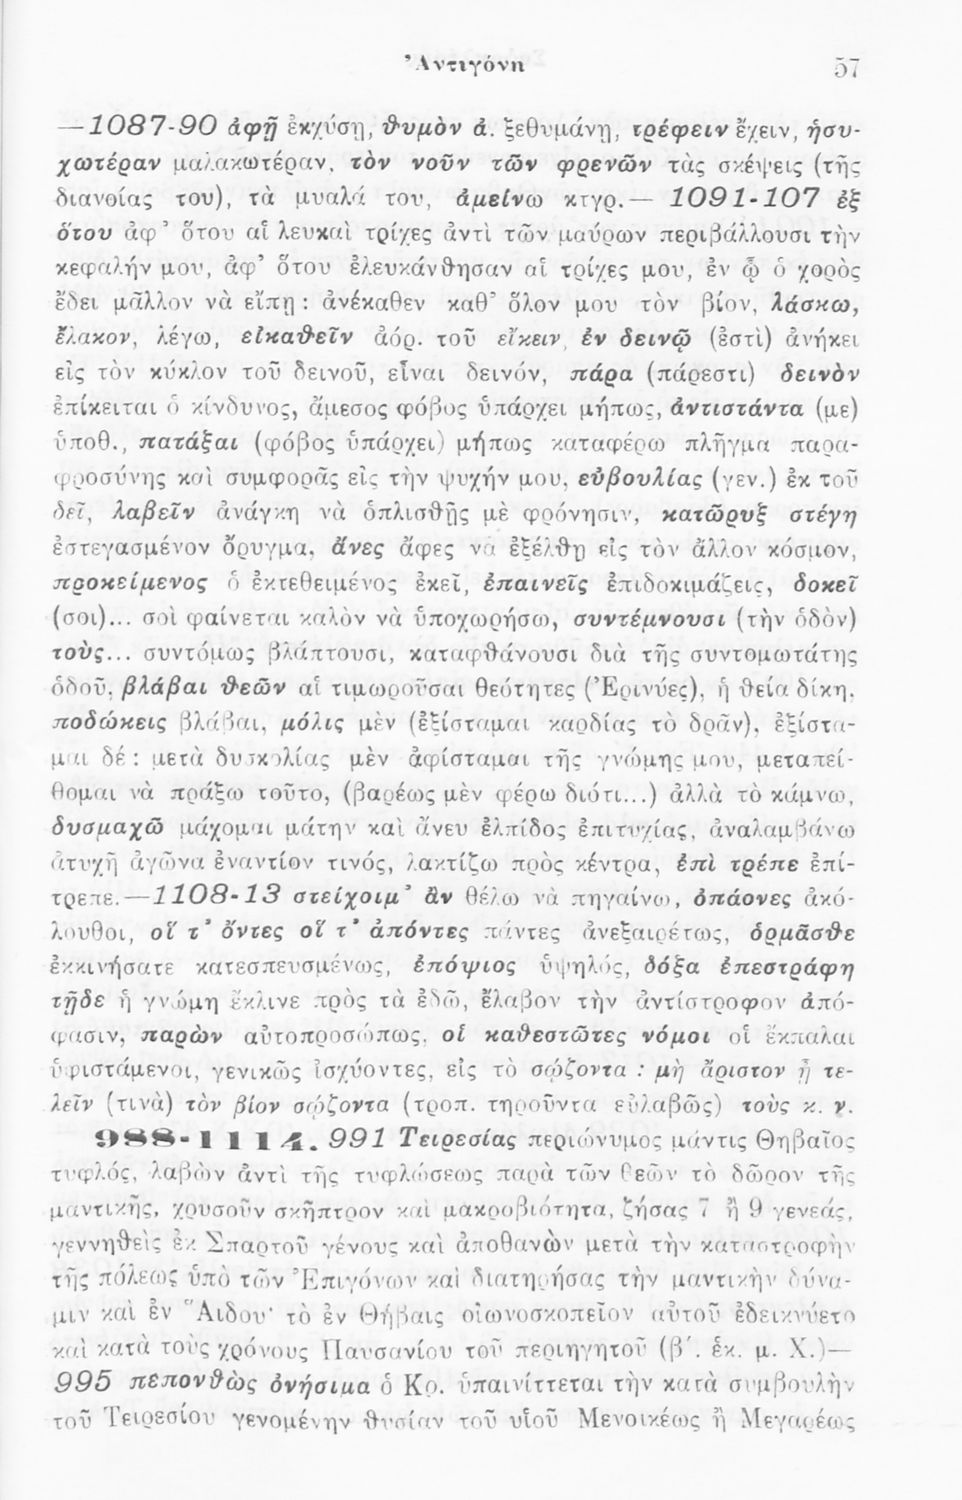 Ἀντιγόνη 57
—1087-90 ἀφῇ ἐκχύσῃ, θυμὸν ἀ. ξεθυμάνῃ, τρέφειν ἔχειν, ἡσυ-
χωτέραν μαλακωτέραν, τὸν νοῦν τῶν φρενῶν τὰς σκέψεις (τῆς
διανοίας του), τὰ μυαλά του, ἀμείνω κτγρ.— 1091-107 ἐξ
ὅτου ἀφ’ ὅτου αἱ λευκαὶ τρίχες ἀντὶ τῶν μαύρων περιβάλλουσι τὴν
κεφαλήν μου, ἀφ’ ὅτου ἐλευκάνθησαν αἱ τρίχες μου, ἐν ᾧ ὁ χορὸς
ἔδει μᾶλλον νὰ εἴπῃ : ἀνέκαθεν καθ’ ὅλον μου τὸν βίον, λάσκω,
ἔλακον, λέγω, εἰκαθεῖν ἀόρ. τοῦ εἴκειν, ἐν δεινῷ (ἐστὶ) ἀνήκει
εἰς τὸν κύκλον τοῦ δεινοῦ, εἶναι δεινόν, πάρα (πάρεστι) δεινὸν
ἐπίκειται ὁ κίνδυνος, ἄμεσος φόβος ὑπάρχει μήπως, ἀντιστάντα (με)
ὑποθ., πατάξαι (φόβος ὑπάρχει) μήπως καταφέρω πλῆγμα παρα-
φροσύνης καὶ συμφορᾶς εἰς τὴν ψυχήν μου, εὐβουλίας (γεν.) ἐκ τοῦ
δεῖ, λαβεῖν ἀνάγκη νὰ ὁπλισθῇς μὲ φρόνησιν, κατῶρυξ στέγη
ἐστεγασμένον ὄρυγμα, ἄνες ἄφες νὰ ἐξέλθῃ εἰς τὸν ἄλλον κόσμον,
προκείμενος ὁ ἐκτεθειμένος ἐκεῖ, ἐπαινεῖς ἐπιδοκιμάζεις, δοκεῖ
(σοι)... σοὶ φαίνεται καλὸν νὰ ὑποχωρήσω, συντέμνουσι (τὴν ὁδὸν)
τούς... συντόμως βλάπτουσι, καταφθάνουσι διὰ τῆς συντομωτάτης
ὁδοῦ, βλάβαι θεῶν αἱ τιμωροῦσαι θεότητες (Ἐρινύες), ἡ θεία δίκη,
ποδώκεις βλάβαι, μόλις μὲν (ἐξίσταμαι καρδίας τὸ δρᾶν), ἐξίστα-
μαι δέ : μετὰ δυσκολίας μὲν ἀφίσταμαι τῆς γνώμης μου, μεταπεί-
θομαι νὰ πράξω τοῦτο, (βαρέως μὲν φέρω διότι...) ἀλλὰ τὸ κάμνω,
δυσμαχῶ μάχομαι μάτην καὶ ἄνευ ἐλπίδος ἐπιτυχίας, ἀναλαμβάνω
ἀτυχῆ ἀγῶνα ἐναντίον τινός, λακτίζω πρὸς κέντρα, ἐπὶ τρέπε ἐπί-
τρεπε.—1108-13 στείχοιμ’ ἂν θέλω νὰ πηγαίνω, ὀπάονες ἀκό-
λουθοι, οἵ τ’ ὄντες οἵ τ’ ἀπόντες πάντες ἀνεξαιρέτως, ὁρμᾶσθε
ἐκκινήσατε κατεσπευσμένως, ἐπόψιος ὑψηλός, δόξα ἐπεστράφη
τῇδε ἡ γνώμη ἔκλινε πρὸς τὰ ἐδῶ, ἔλαβον τὴν ἀντίστροφον ἀπό-
φασιν, παρὼν αὐτοπροσώπως, οἱ καθεστῶτες νόμοι οἱ ἔκπαλαι
ὑφιστάμενοι, γενικῶς ἰσχύοντες, εἰς τὸ σῴζοντα : μὴ ἄριστον ᾖ τε-
λεῖν (τινὰ) τὸν βίον σῴζοντα (τροπ. τηροῦντα εὐλαβῶς) τοὺς κ. ν.
988-1114. 991 Τειρεσίας περιώνυμος μάντις Θηβαῖος
τυφλός, λαβὼν ἀντὶ τῆς τυφλώσεως παρὰ τῶν θεῶν τὸ δῶρον τῆς
μαντικῆς, χρυσοῦν σκῆπτρον καὶ μακροβιότητα, ζήσας 7 ἢ 9 γενεάς,
γεννηθεὶς ἐκ Σπαρτοῦ γένους καὶ ἀποθανὼν μετὰ τὴν καταστροφὴν
τῆς πόλεως ὑπὸ τῶν Ἐπιγόνων καὶ διατηρήσας τὴν μαντικὴν δύνα-
μιν καὶ ἐν Ἅιδου· τὸ ἐν Θήβαις οἰωνοσκοπεῖον αὐτοῦ ἐδεικνύετο
καὶ κατὰ τοὺς χρόνους Παυσανίου τοῦ περιηγητοῦ (β΄. ἑκ. μ. Χ.)—
995 πεπονθὼς ὀνήσιμα ὁ Κρ. ὑπαινίττεται τὴν κατὰ συμβουλὴν
τοῦ Τειρεσίου γενομένην θυσίαν τοῦ υἱοῦ Μενοικέως ἢ Μεγαρέως